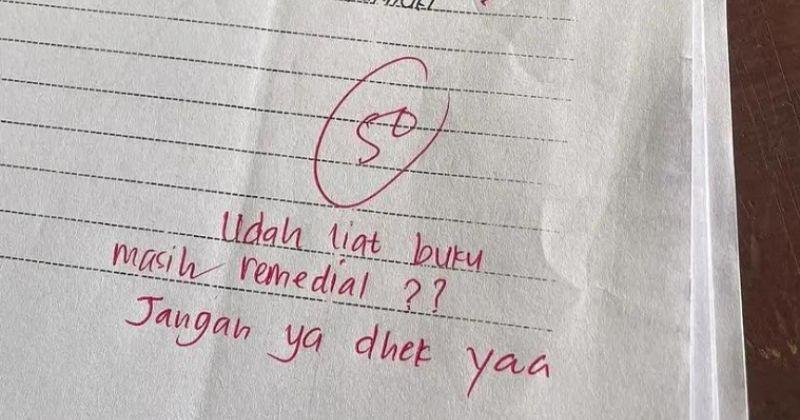 50
Udah liat buku
masih remedial ??
Jangan ya dhek yaa